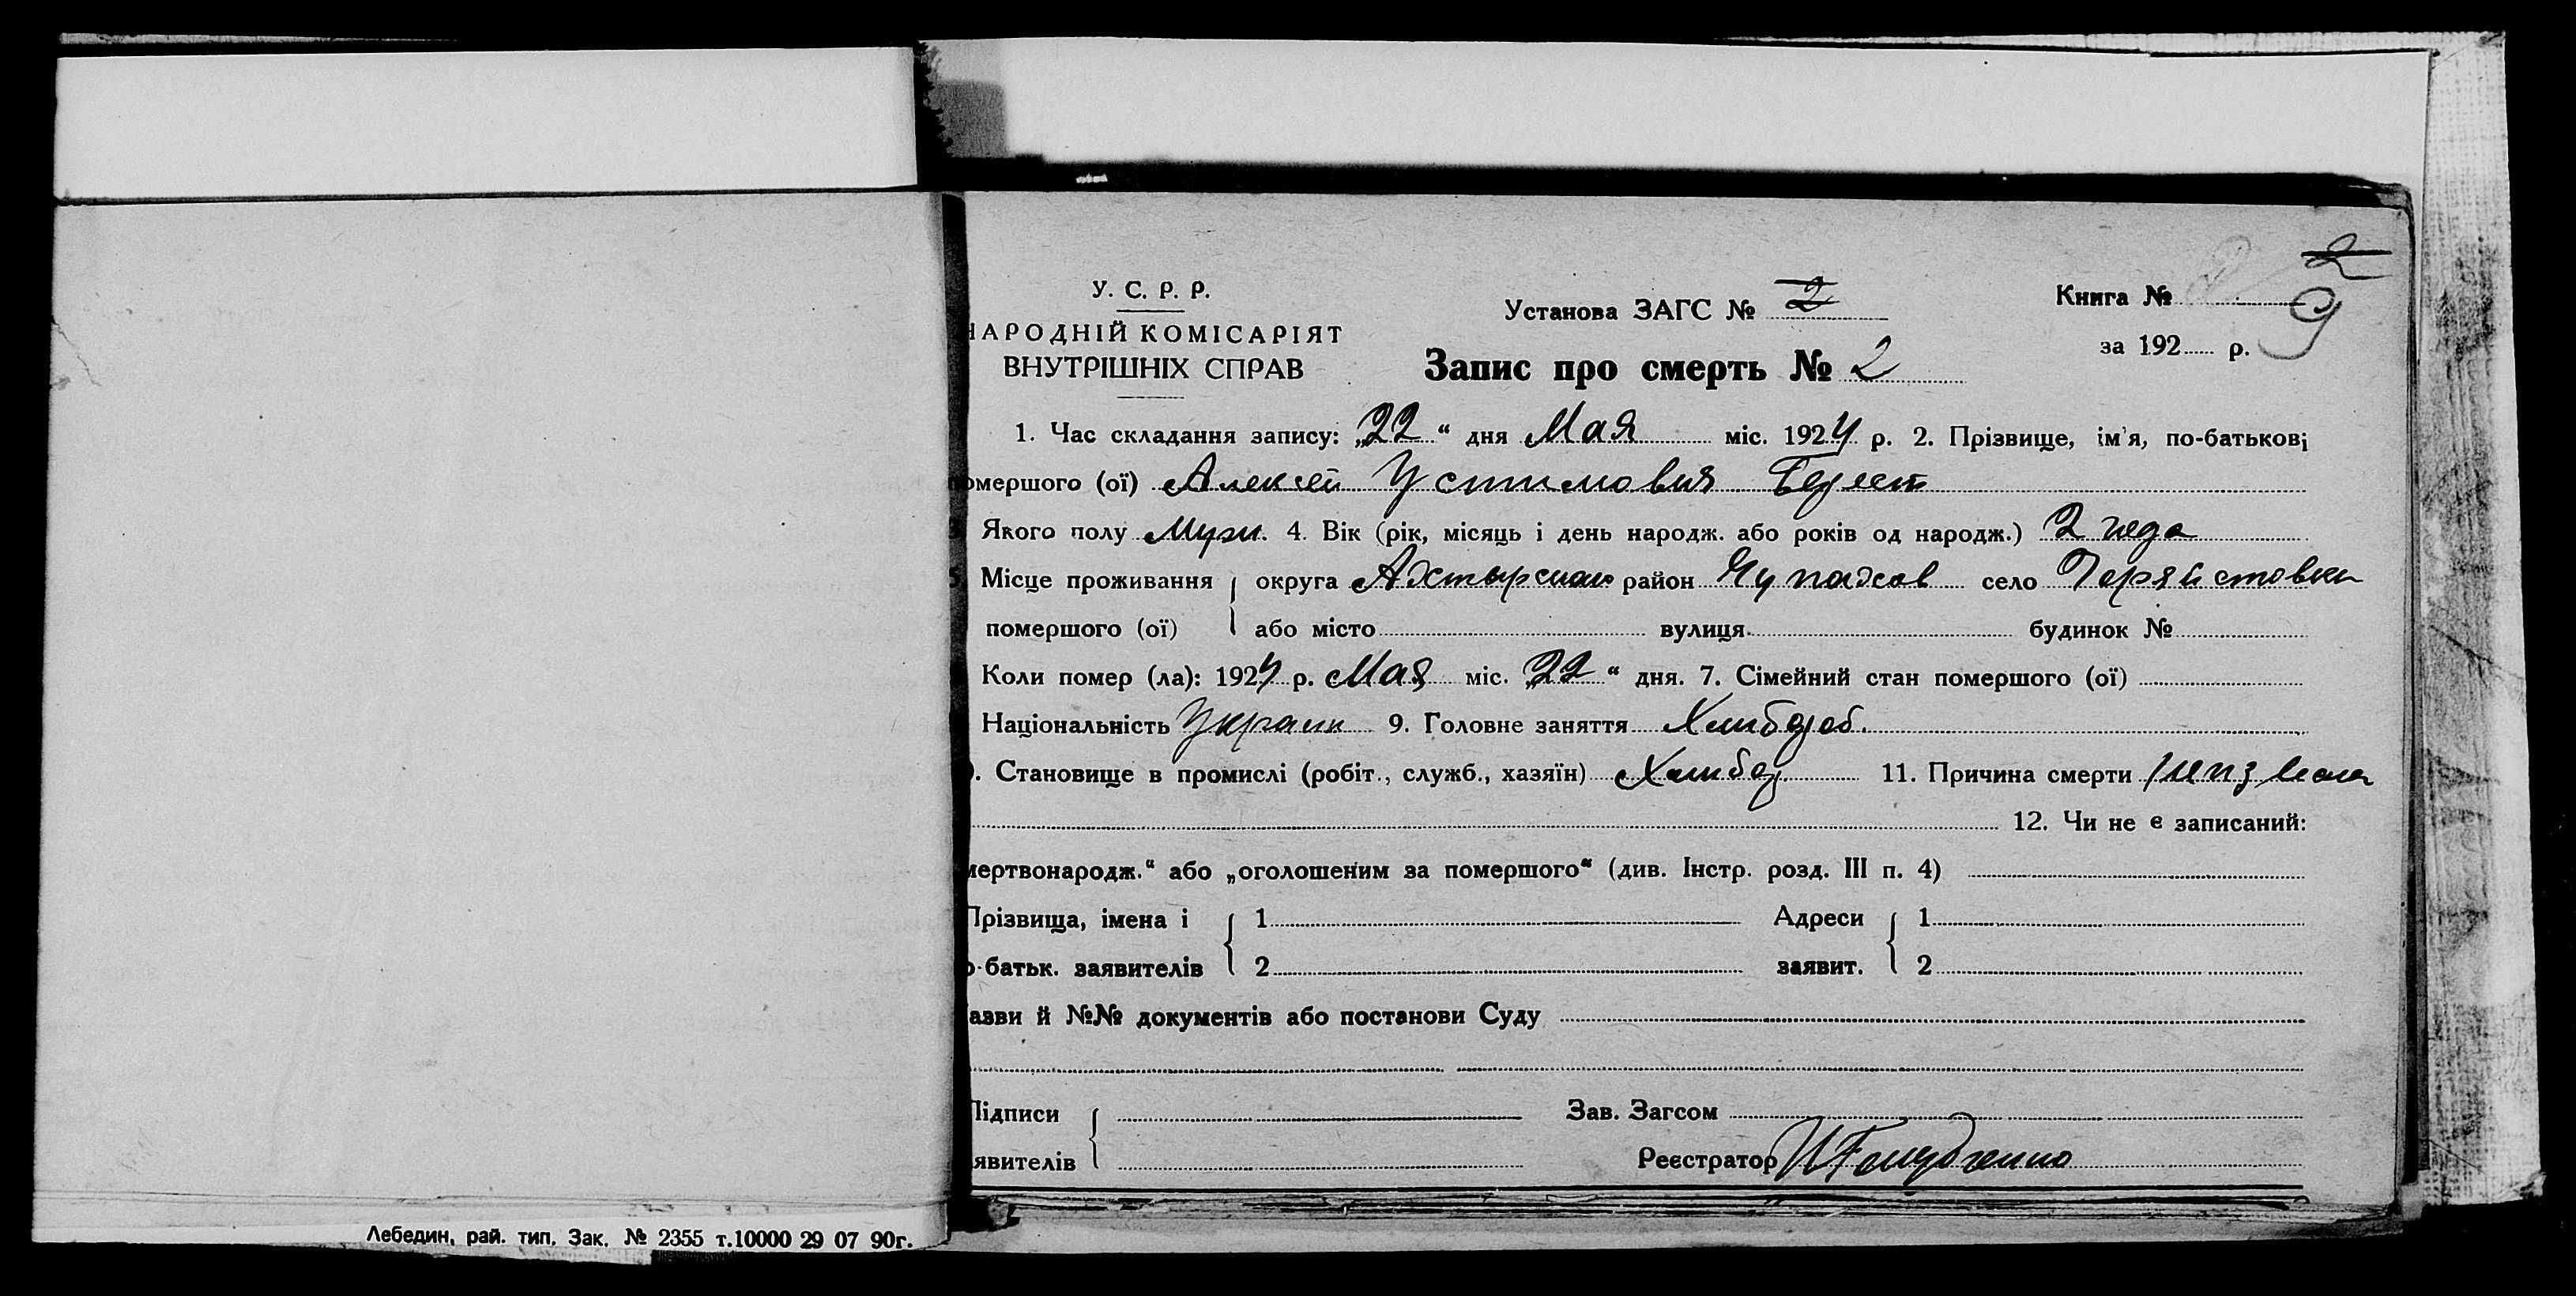 2
У. С. Р. Р.
Установа ЗАГС № 2
Книга №
9
НАРОДНІЙ КОМІСАРІЯТ
за 192 р.
ВНУТРІШНІХ СПРАВ
Запис про смерть № 2
1. Час складання запису: „22“ дня Мая міс. 1924 р. 2. Прізвище, ім'я, по-батькові
помершого (ої) Алексей Устимович Берест
Якого полу Муж. 4. Вік (рік, місяць і день народж. або років од народж.) 2 года
Місце проживання округа Ахтырском район Чупахов село
помершого (ої) або місто вулиця будинок №
Коли помер (ла): 1924 р. Мая міс. „22“ дня. 7. Сімейний стан помершого (ої)
Національність Украин 9. Головне заняття Хлибороб.
. Становище в промислі (робіт., служб., хазяїн) Хлибор 11. Причина смерти
12. Чи не є записаний:
мертвонародж.“ або „оголошеним за помершого“ (див. Інстр. розд. III п. 4)
Прізвища, імена і 1 Адреси 1
о-батьк. заявителів 2 заявит. 2
азви й №№ документів або постанови Суду
Підписи Зав. Загсом
явителів Реєстратор
Лебедин, рай. тип. Зак. № 2355 т.10000 29 07 90г.